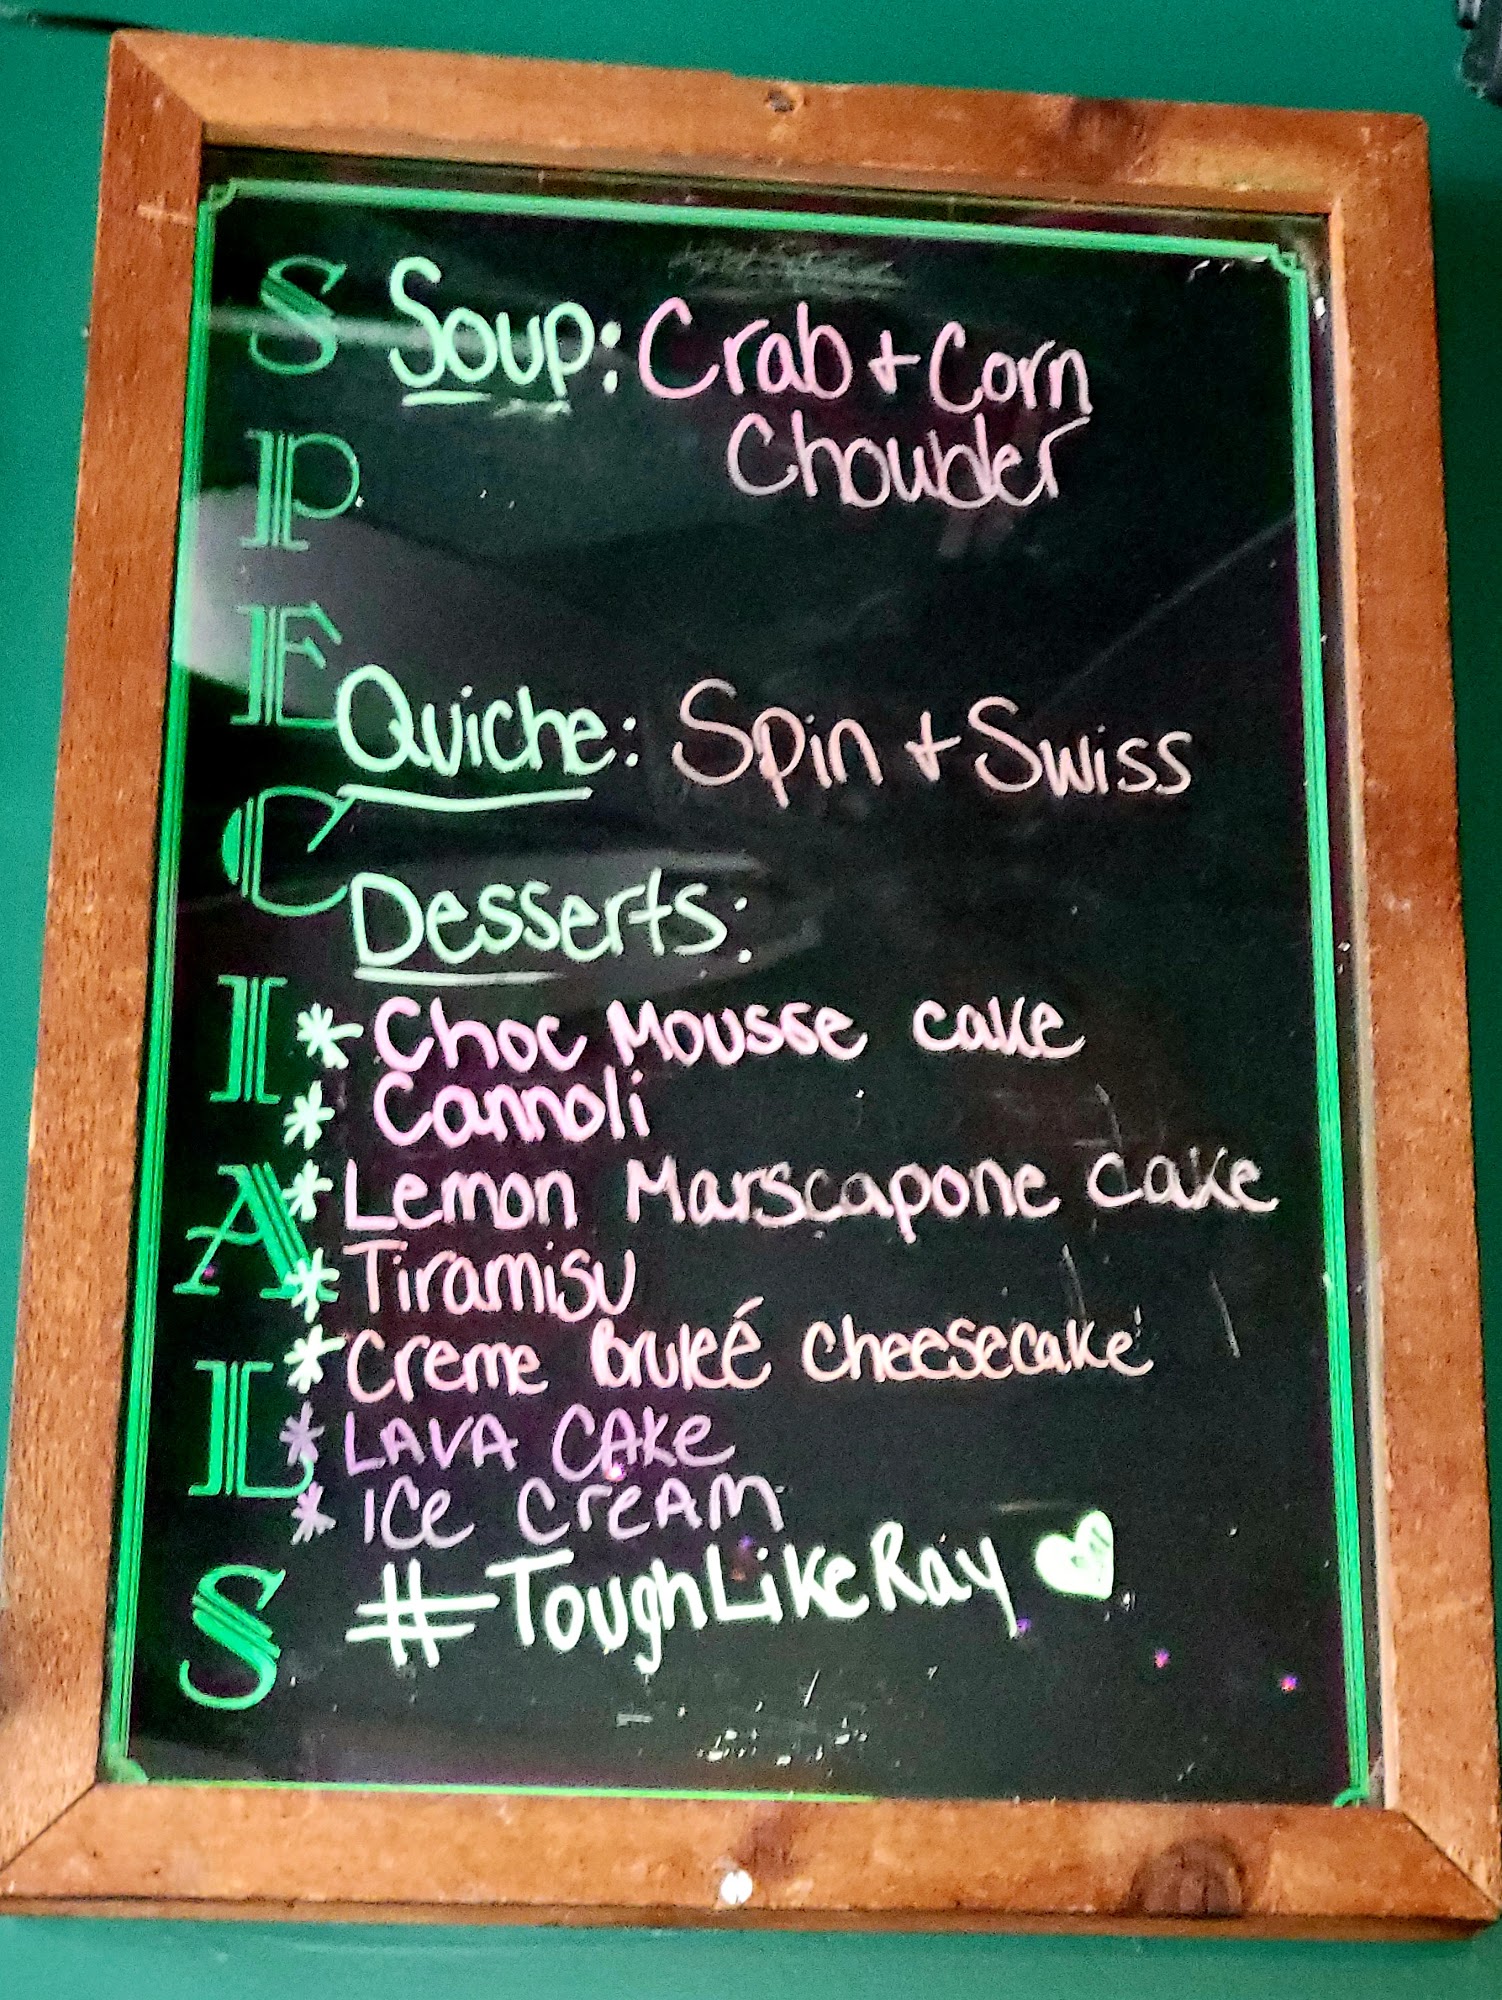 SPECIALS
Soup: Crab + Corn
Chowder
Quiche: Spin + Swiss
Desserts:
* Choc Mousse cake
* Cannoli
* Lemon Marscapone cake
* Tiramisu
* Creme Bruleé cheesecake
* LAVA CAKe
* ICe CreAm
#ToughLikeRay